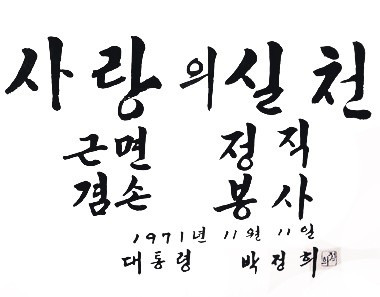 사랑의 실천
근면 정직
겸손 봉사
1971년 11월 11일
대통령 박정희